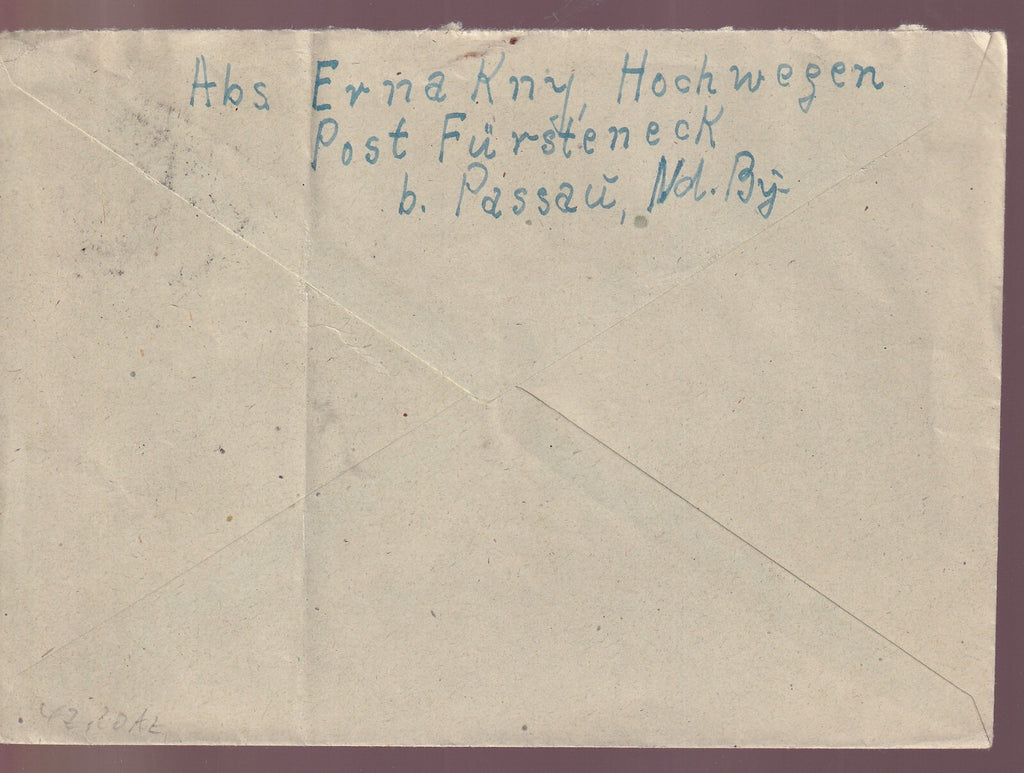 Abs Erna Kny, Hochwegen
Post Fürsteneck
b. Passau, Nd. By